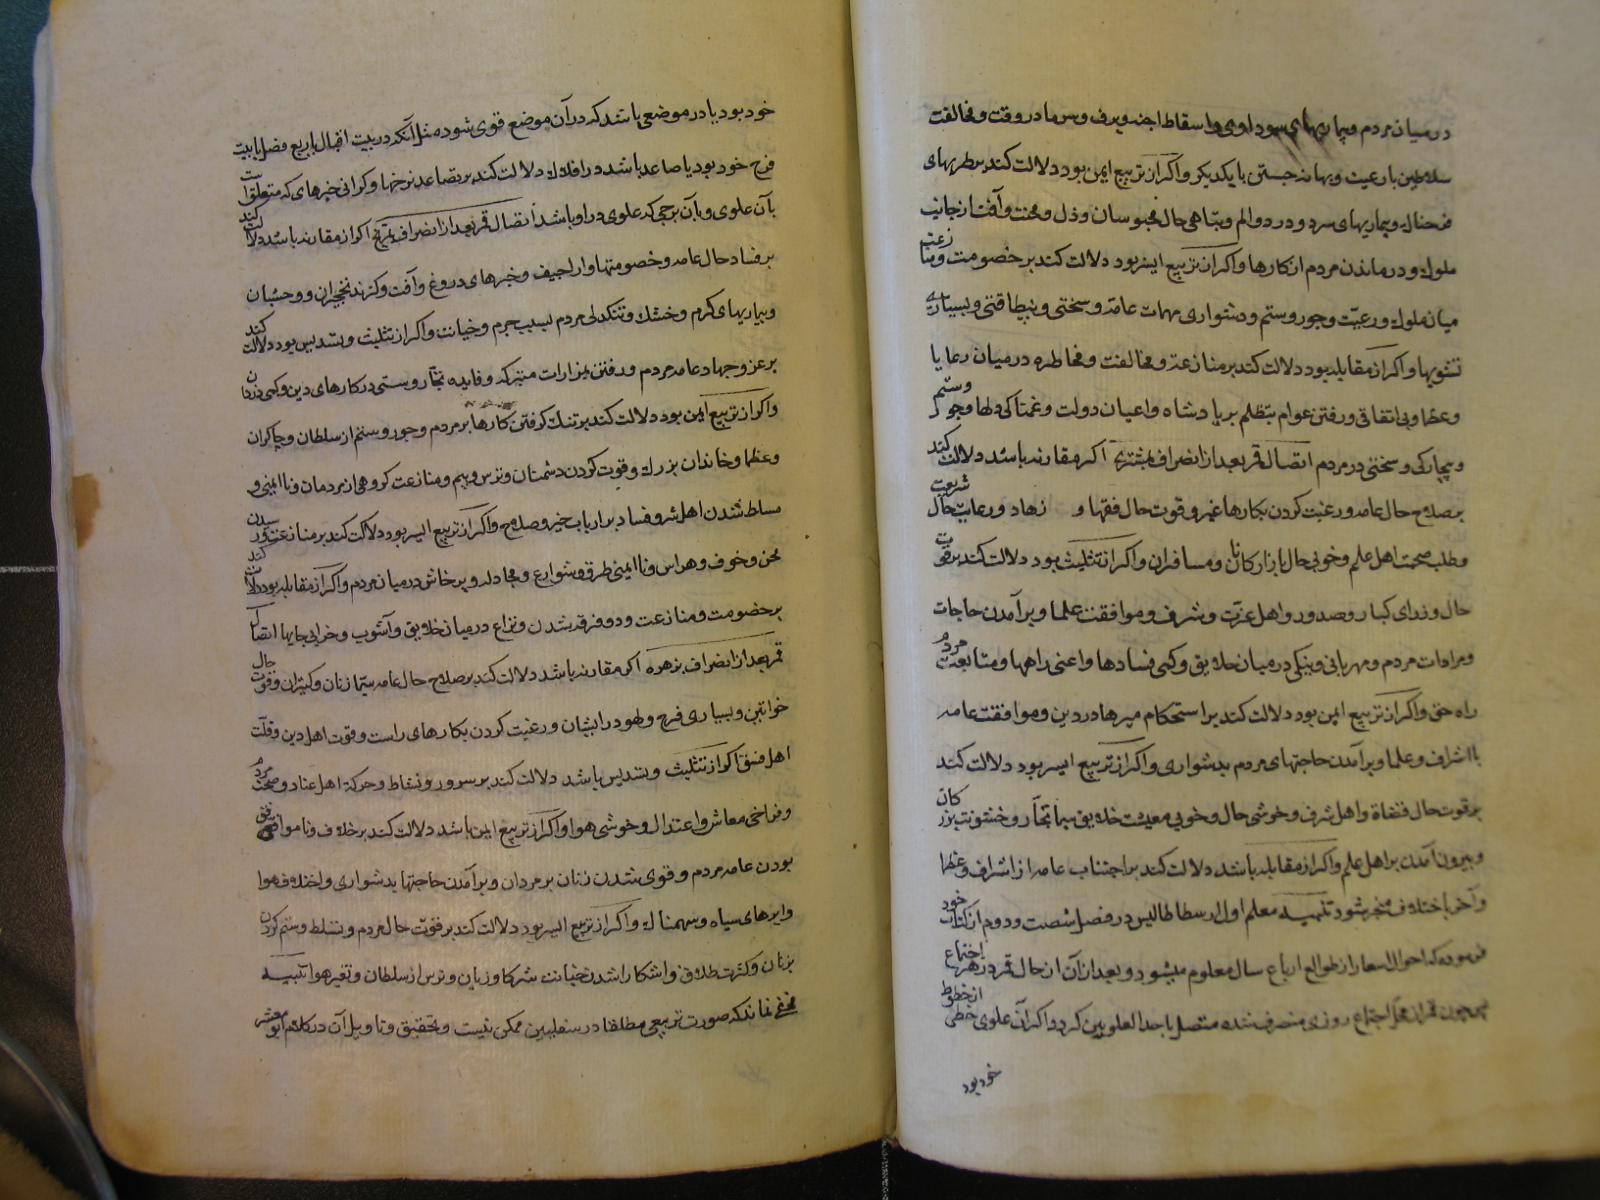 در میان مردم و بیماریهای سوداوی و اسقاط اجنه و برف و سرما در وقت و مخالفت
سلاطین با رعیت و بهانه جستن با یکدیکر و اکر از تربیع ایمن بود دلالت کند بر طریهای
و بیماریهای سرد و درد و الم و تباهی حال محبوسان و ذل و محنت و آفت از جانب
ملوک و درماندن مردم از کارها و اکر از تربیع ایسر بود دلالت کند بر خصومت و منازعت
میان ملوک و رعیّت و جور و ستم و دشواری مهمات عامه و سختی و بیطاقتی و بسیاری
تشویها و اکر از مقابله بود دلالت کند بر منازعت و مخالفت و مخاطره در میان رعایا
و عظما و بی اتفاقی و رفتن عوام بتظلم بر پادشاه و اعیان دولت و غمناکی دلها و جور و ستم
و بیچارکی و سختی در مردم اتصال قمر بعد از انصراف بمشتری اکر مقارنه باشد دلالت کند
بر صلاح حال عامه و رغبت کردن بکارها خیر و قوت حال فقها و زهاد و رعایت حال شریعت
و طلب صحبت اهل علم و خوبی حال بازارکانان و مسافران و اکر از تثلیث بود دلالت کند بر قوت
حال وزرای کبار و صدور و اهل عزت و شرف و موافقت علما و برآمدن حاجات
و مرادات مردم و مهربانی و نیکی در میان خلایق و کمی فسادها و اعنی راهها و متابعت مردم
راه حق و اکر از تربیع ایمن بود دلالت کند بر استحکام میرها در دین و موافقت عامه
با اشراف و علما و برآمدن حاجتهای مردم بدشواری و اکر از تربیع ایسر بود دلالت کند
بر قوت حال قضاة و اهل شرف و خوشی حال و خوبی معیشت خلایق سیما تجّار و خشونت بزرکان
و بیرون آمدن بر اهل علم و اکر از مقابله باشد دلالت کند بر اجتناب عامه از اشراف و عظما
و آخر باختلاف منجر شود تنبیه معلم اول ارسطاطالیس در فصل شصت و دوم از کتاب خود
فرموده که احوال اسعار از طوالع ارباع سال معلوم میشود و بعد از آن از حال قمر در هر اجتماع
پس چون قمر از محل اجتماع روزی منصرف شده متصل باحد العلویین کردد اکر آن علوی خطی از خطوط
خود بود
خود بود یا در موضعی باشد که در آن موضع قوی شود مثل آنکه در بیت اقبال یا ربع فضل یا بیت
فرح خود بود یا صاعد باشد در افلاک دلالت کند بر تصاعد نرخها و کرانی خیرهای که متعلق است
بآن علوی و بآن برجی که علوی در او باشد اتصال قمر بعد از انصراف بمریخ اکر از مقارنه باشد دلالت کند
بر فساد حال عامه و خصومتها و اراجیف و خبرهای دروغ و آفت و کزند نخچیران و وحشیان
و بیماریهای کرم و خشک و تنکدلی مردم بسبب جرم و خیانت و اکر از تثلیث و تسدیس بود دلالت کند
بر عز و جهاد عامه مردم و رفتن بمزارات متبرکه و فایده تجّار و سستی در کارهای دین و کمی دزدان
و اکر از تربیع ایمن بود دلالت کند بر تنک کرفتن کارها بر مردم و جور و ستم از سلطان و چاکران
و عظما و خاندان بزرک و قوت کردن دشمنان و ترس و بیم و منازعت کروهی از بردمان و نا ایمنی و
مسلط شدن اهل شر و فساد بر ارباب خیر و صلاح و اکر از تربیع ایسر بود دلالت کند بر منازعت و رسیدن
محن و خوف و هراس و نا ایمنی طرق و شوارع و مجادله و پرخاش در میان مردم و اکر از مقابله بود دلالت کند
بر خصومت و منازعت و دو فرقه شدن و نزاع در میان خلایق و آشوب و خرابی جایها اتصال
قمر بعد از انصراف بزهره اکر مقارنه باشد دلالت کند بر صلاح حال عامه سیما زنان و کنیزان و قوت حال
خواتین و بسیاری فرح و لهو در ایشان و رغبت کردن بکارهای راست و قوت اهل دین و قلّت
اهل فسق اکر از تثلیث و تسدیس باشد دلالت کند بر سرور و نشاط و حرکة اهل عناد و صحت مردم
و فراخی معاش و اعتدال و خوشی هوا و اکر از تربیع ایمن باشد دلالت کند بر خلاف و نا موافق
بودن عامه مردم و قوی شدن زنان بر مردان و برآمدن حاجتها بدشواری و اختلاف هوا
و ابرهای سیاه و سهمناک و اکر از تربیع ایسر بود دلالت کند بر قوّت حال مردم و تسلط و ستم کردن
بزنان و کثرت طلاق و اشکارا شدن خیانت شرکا و زیان و ترس از سلطان و تغیر هوا تنبیه
مخفی نماند که صورت تربیعی مطلقا در سفلیین ممکن نیست و تحقیق و تاویل آن در کلام ابو معشر